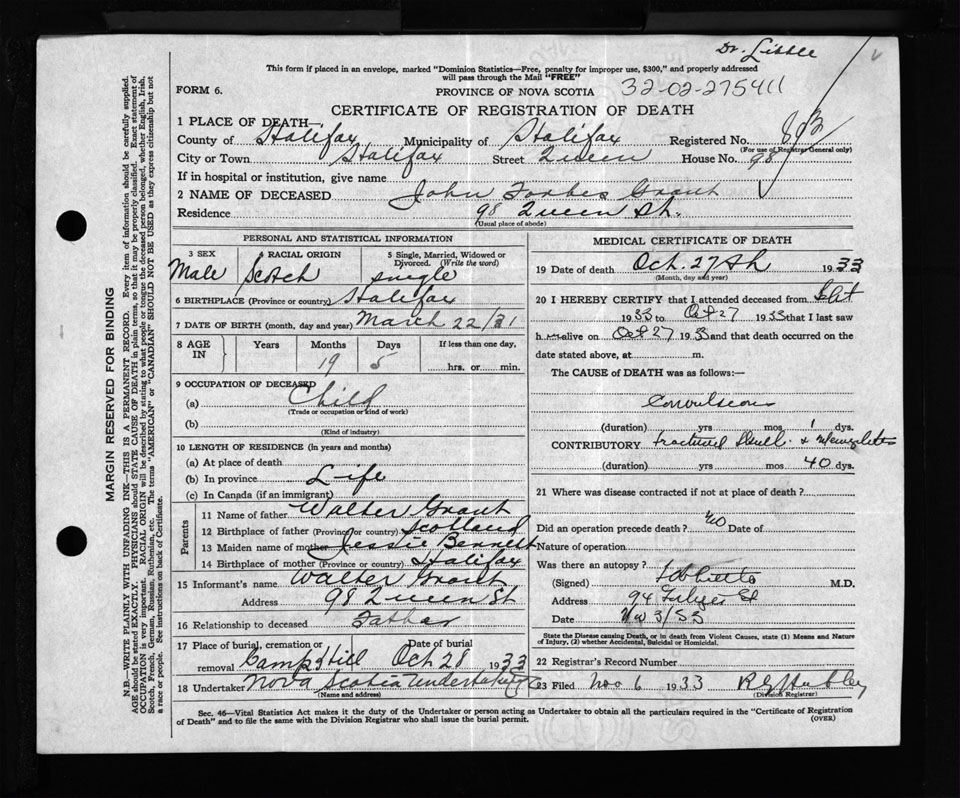 Dr. Little
This form if placed in an envelope, marked "Dominion Statistics—Free, penalty for improper use, $300," and properly addressed
will pass through the Mail "FREE"
FORM 6.
PROVINCE OF NOVA SCOTIA
32-02-275411
CERTIFICATE OF REGISTRATION OF DEATH
1 PLACE OF DEATH—
County of Halifax Municipality of Halifax Registered No.
(For use of Registrar General only)
City or Town Halifax Street Queen House No. 98
If in hospital or institution, give name
2 NAME OF DECEASED John Forbes Grant
Residence 98 Queen St.
(Usual place of abode)
PERSONAL AND STATISTICAL INFORMATION
3 SEX Male
4 RACIAL ORIGIN Scotch
5 Single, Married, Widowed or Divorced. (Write the word) single
6 BIRTHPLACE (Province or country) Halifax
7 DATE OF BIRTH (month, day and year) March 22/31
8 AGE IN Years Months 19 Days 5 If less than one day, hrs. or min.
9 OCCUPATION OF DECEASED
(a) Child
(Trade or occupation or kind of work)
(b)
(Kind of industry)
10 LENGTH OF RESIDENCE (in years and months)
(a) At place of death
(b) In province Life
(c) In Canada (if an immigrant)
Parents
11 Name of father Walter Grant
12 Birthplace of father (Province or country) Scotland
13 Maiden name of mother Jessie Bennett
14 Birthplace of mother (Province or country) Halifax
15 Informant's name Walter Grant
Address 98 Queen St
16 Relationship to deceased Father
17 Place of burial, cremation or removal Camp Hill Date of burial Oct 28 1933
18 Undertaker Nova Scotia Undertaking Co
(Name and address)
MEDICAL CERTIFICATE OF DEATH
19 Date of death Oct. 27th 1933
(Month, day and year)
20 I HEREBY CERTIFY that I attended deceased from
1933 to Oct 27 1933 that I last saw
h m alive on Oct 27 1933 and that death occurred on the
date stated above, at m.
The CAUSE of DEATH was as follows:—
Convulsions
(duration) yrs mos 1 dys.
CONTRIBUTORY Fractured Skull &
(duration) yrs mos 40 dys.
21 Where was disease contracted if not at place of death?
Did an operation precede death? No Date of
Nature of operation
Was there an autopsy?
(Signed) M.D.
Address 94
Date Nov 3/33
State the Disease causing Death, or in death from Violent Causes, state (1) Means and Nature
of Injury, (2) whether Accidental, Suicidal or Homicidal.
22 Registrar's Record Number
23 Filed Nov 6 1933
(Division Registrar)
Sec. 46—Vital Statistics Act makes it the duty of the Undertaker or person acting as Undertaker to obtain all the particulars required in the "Certificate of Registration
of Death" and to file the same with the Division Registrar who shall issue the burial permit.
(OVER)
MARGIN RESERVED FOR BINDING
N.B.—WRITE PLAINLY WITH UNFADING INK—THIS IS A PERMANENT RECORD. Every item of information should be carefully supplied.
AGE should be stated EXACTLY. PHYSICIANS should STATE CAUSE OF DEATH in plain terms, so that it may be properly classified. Exact statement of
OCCUPATION is very important. RACIAL ORIGIN will be described by stating to what people or tongue the deceased person belonged, whether English, Irish,
Scotch, French, German, Russian, Ruthenian, etc. The terms "AMERICAN" or "CANADIAN" SHOULD NOT BE USED as they express citizenship but not
a race or people. See instructions on back of Certificate.